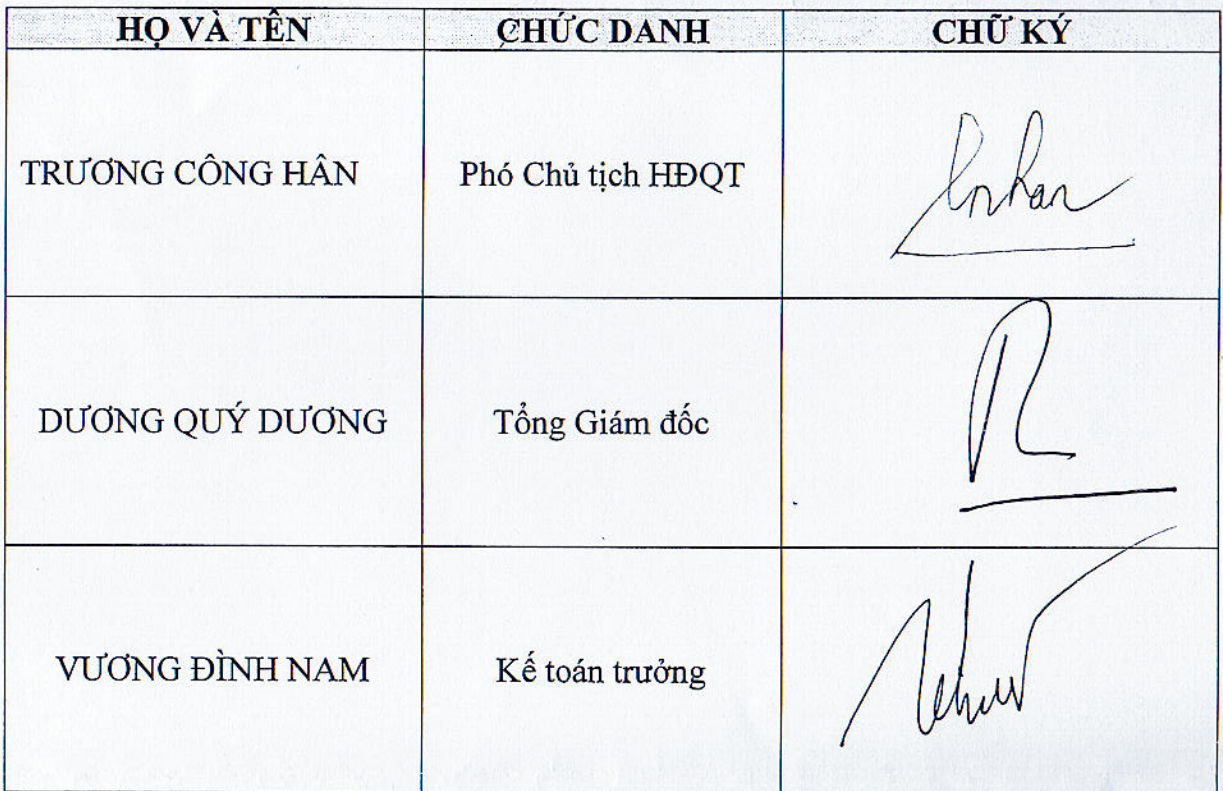 HỌ VÀ TÊN CHỨC DANH CHỮ KÝ
TRƯƠNG CÔNG HÂN Phó Chủ tịch HĐQT
DƯƠNG QUÝ DƯƠNG Tổng Giám đốc
VƯƠNG ĐÌNH NAM Kế toán trưởng